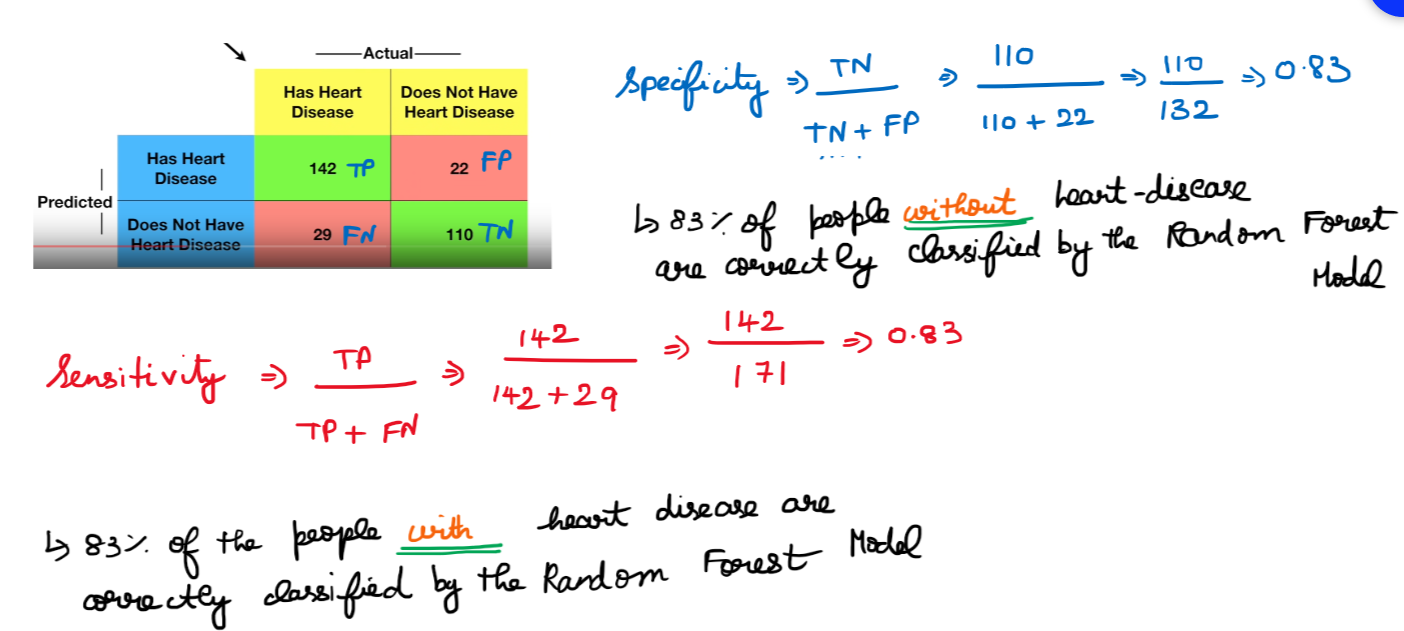 Actual
Has Heart Disease
Does Not Have Heart Disease
Predicted
Has Heart Disease
142 TP
22 FP
Does Not Have Heart Disease
29 FN
110 TN
Specificity ⇒ TN / TN + FP ⇒ 110 / 110 + 22 ⇒ 110 / 132 ⇒ 0.83
↳ 83% of people without heart-disease
are correctly classified by the Random Forest
Model
Sensitivity ⇒ TP / TP + FN ⇒ 142 / 142 + 29 ⇒ 142 / 171 ⇒ 0.83
↳ 83% of the people with heart disease are
correctly classified by the Random Forest Model